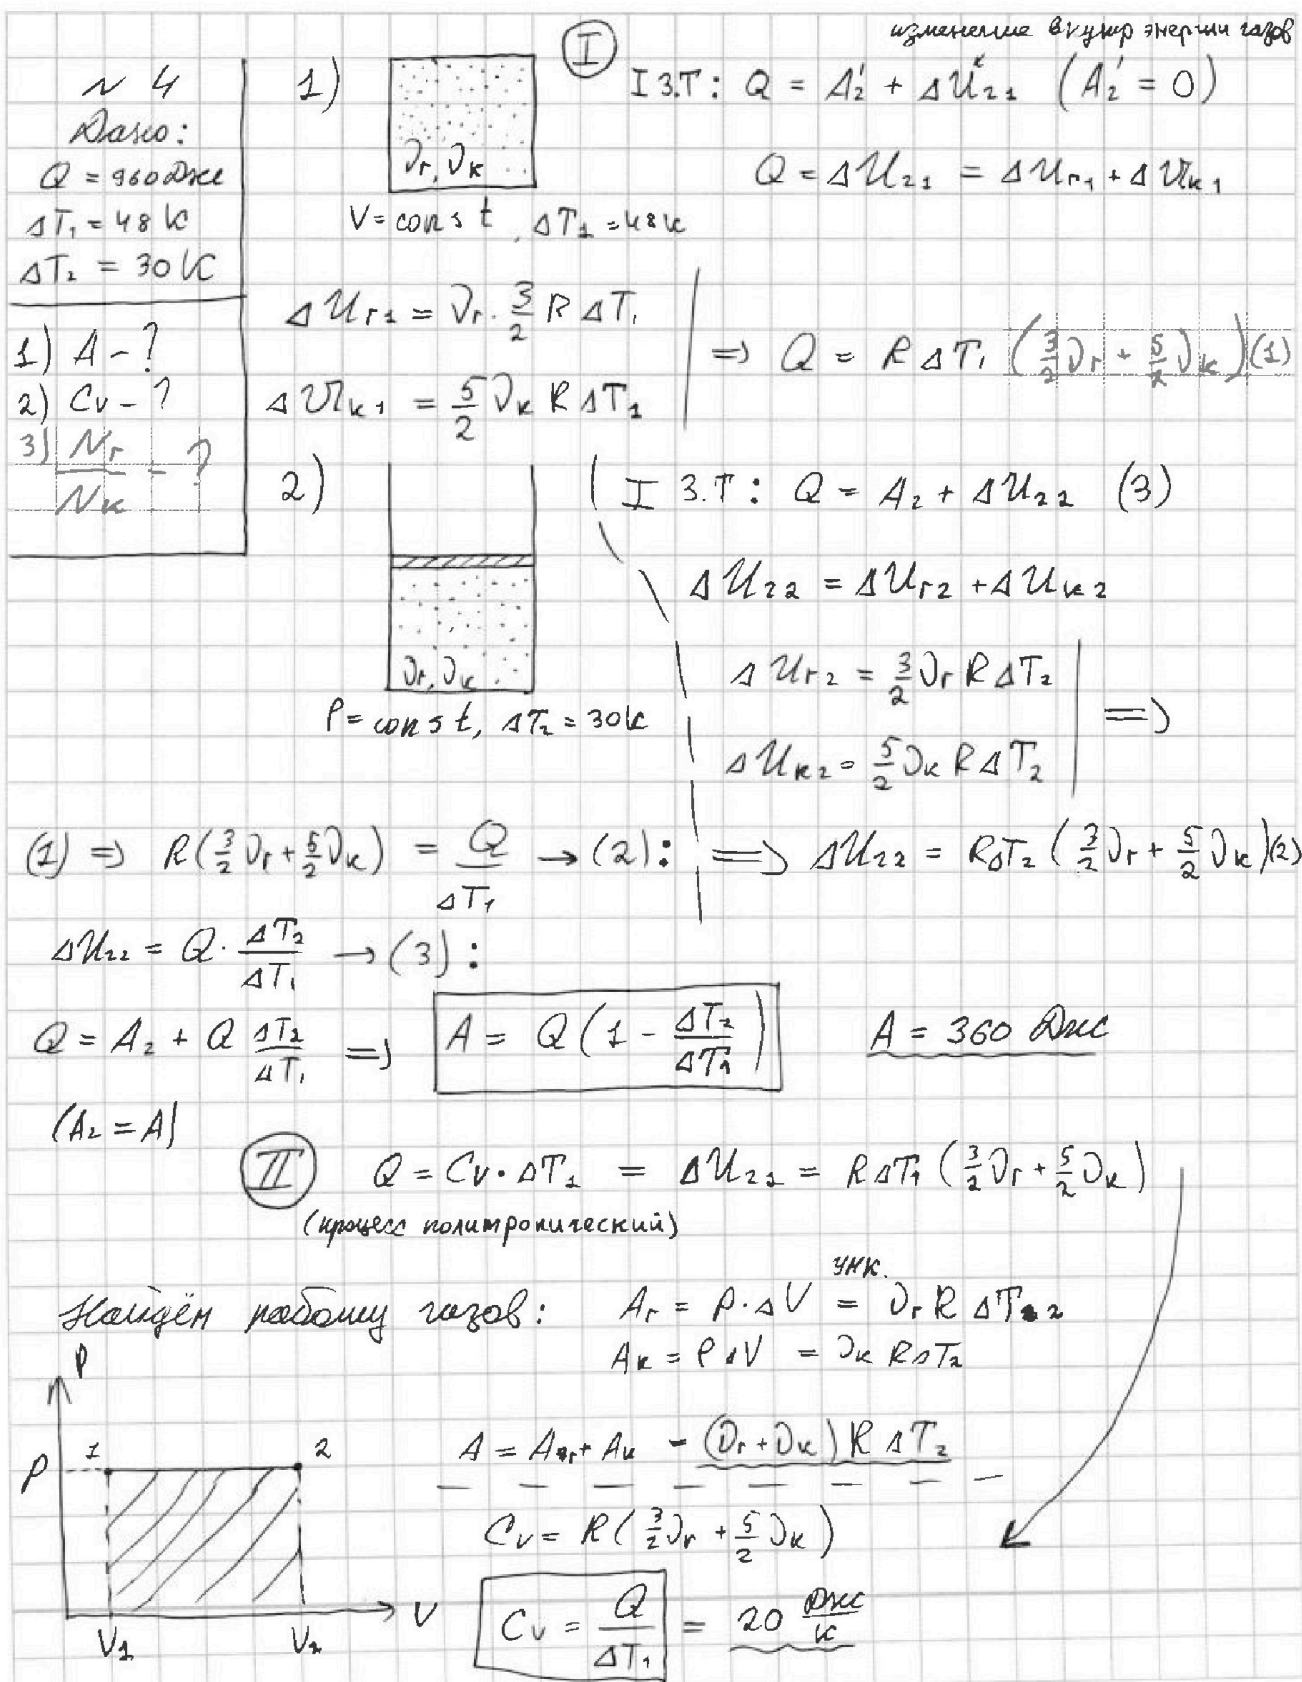 изменение внутр энергии газов
№ 4
Дано:
Q = 960 Дж
ΔT₁ = 48 К
ΔT₂ = 30 К
1) A - ?
2) Cv - ?
3) Nг/Nк - ?
I
1)
νг, νк
V = const, ΔT₁ = 48 К
I З.Т: Q = A₂' + ΔU₂₁ (A₂' = 0)
Q = ΔU₂₁ = ΔUг₁ + ΔUк₁
ΔUг₁ = νг · 3/2 R ΔT₁
ΔUк₁ = 5/2 νк R ΔT₁
=> Q = R ΔT₁ (3/2 νг + 5/2 νк) (1)
2)
νг, νк
P = const, ΔT₂ = 30 К
I З.Т: Q = A₂ + ΔU₂₂ (3)
ΔU₂₂ = ΔUг₂ + ΔUк₂
ΔUг₂ = 3/2 νг R ΔT₂
ΔUк₂ = 5/2 νк R ΔT₂
=>
=> ΔU₂₂ = RΔT₂ (3/2 νг + 5/2 νк) (2)
(1) => R(3/2 νг + 5/2 νк) = Q/ΔT₁ → (2):
ΔU₂₂ = Q · ΔT₂/ΔT₁ → (3):
Q = A₂ + Q ΔT₂/ΔT₁ => A = Q (1 - ΔT₂/ΔT₁) A = 360 Дж
(A₂ = A)
II Q = Cv · ΔT₁ = ΔU₂₁ = RΔT₁ (3/2 νг + 5/2 νк)
(процесс политропический)
Найдём работу газов: Aг = P · ΔV = νг R ΔT₂
УМК.
Aк = P ΔV = νк RΔT₂
A = Aг + Aк = (νг + νк) R ΔT₂
Cv = R (3/2 νг + 5/2 νк)
Cv = Q/ΔT₁ = 20 Дж/К
P
P
1
2
V₁
V₂
V